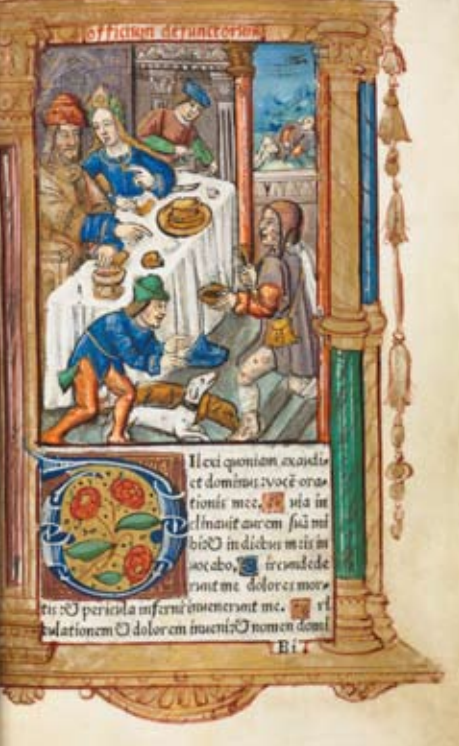 officium defunctorum
Dilexi quoniam exaudi⸗
et dominus: vocē ora⸗
tionis mee. Quia in
clinauit aurem suā mi
hi: & in diebus meis in
uocabo. Circundede
runt me dolores mor⸗
tis: & pericula inferni inuenerunt me. Tri
bulationem & dolorem inueni: & nomen domi
Bi